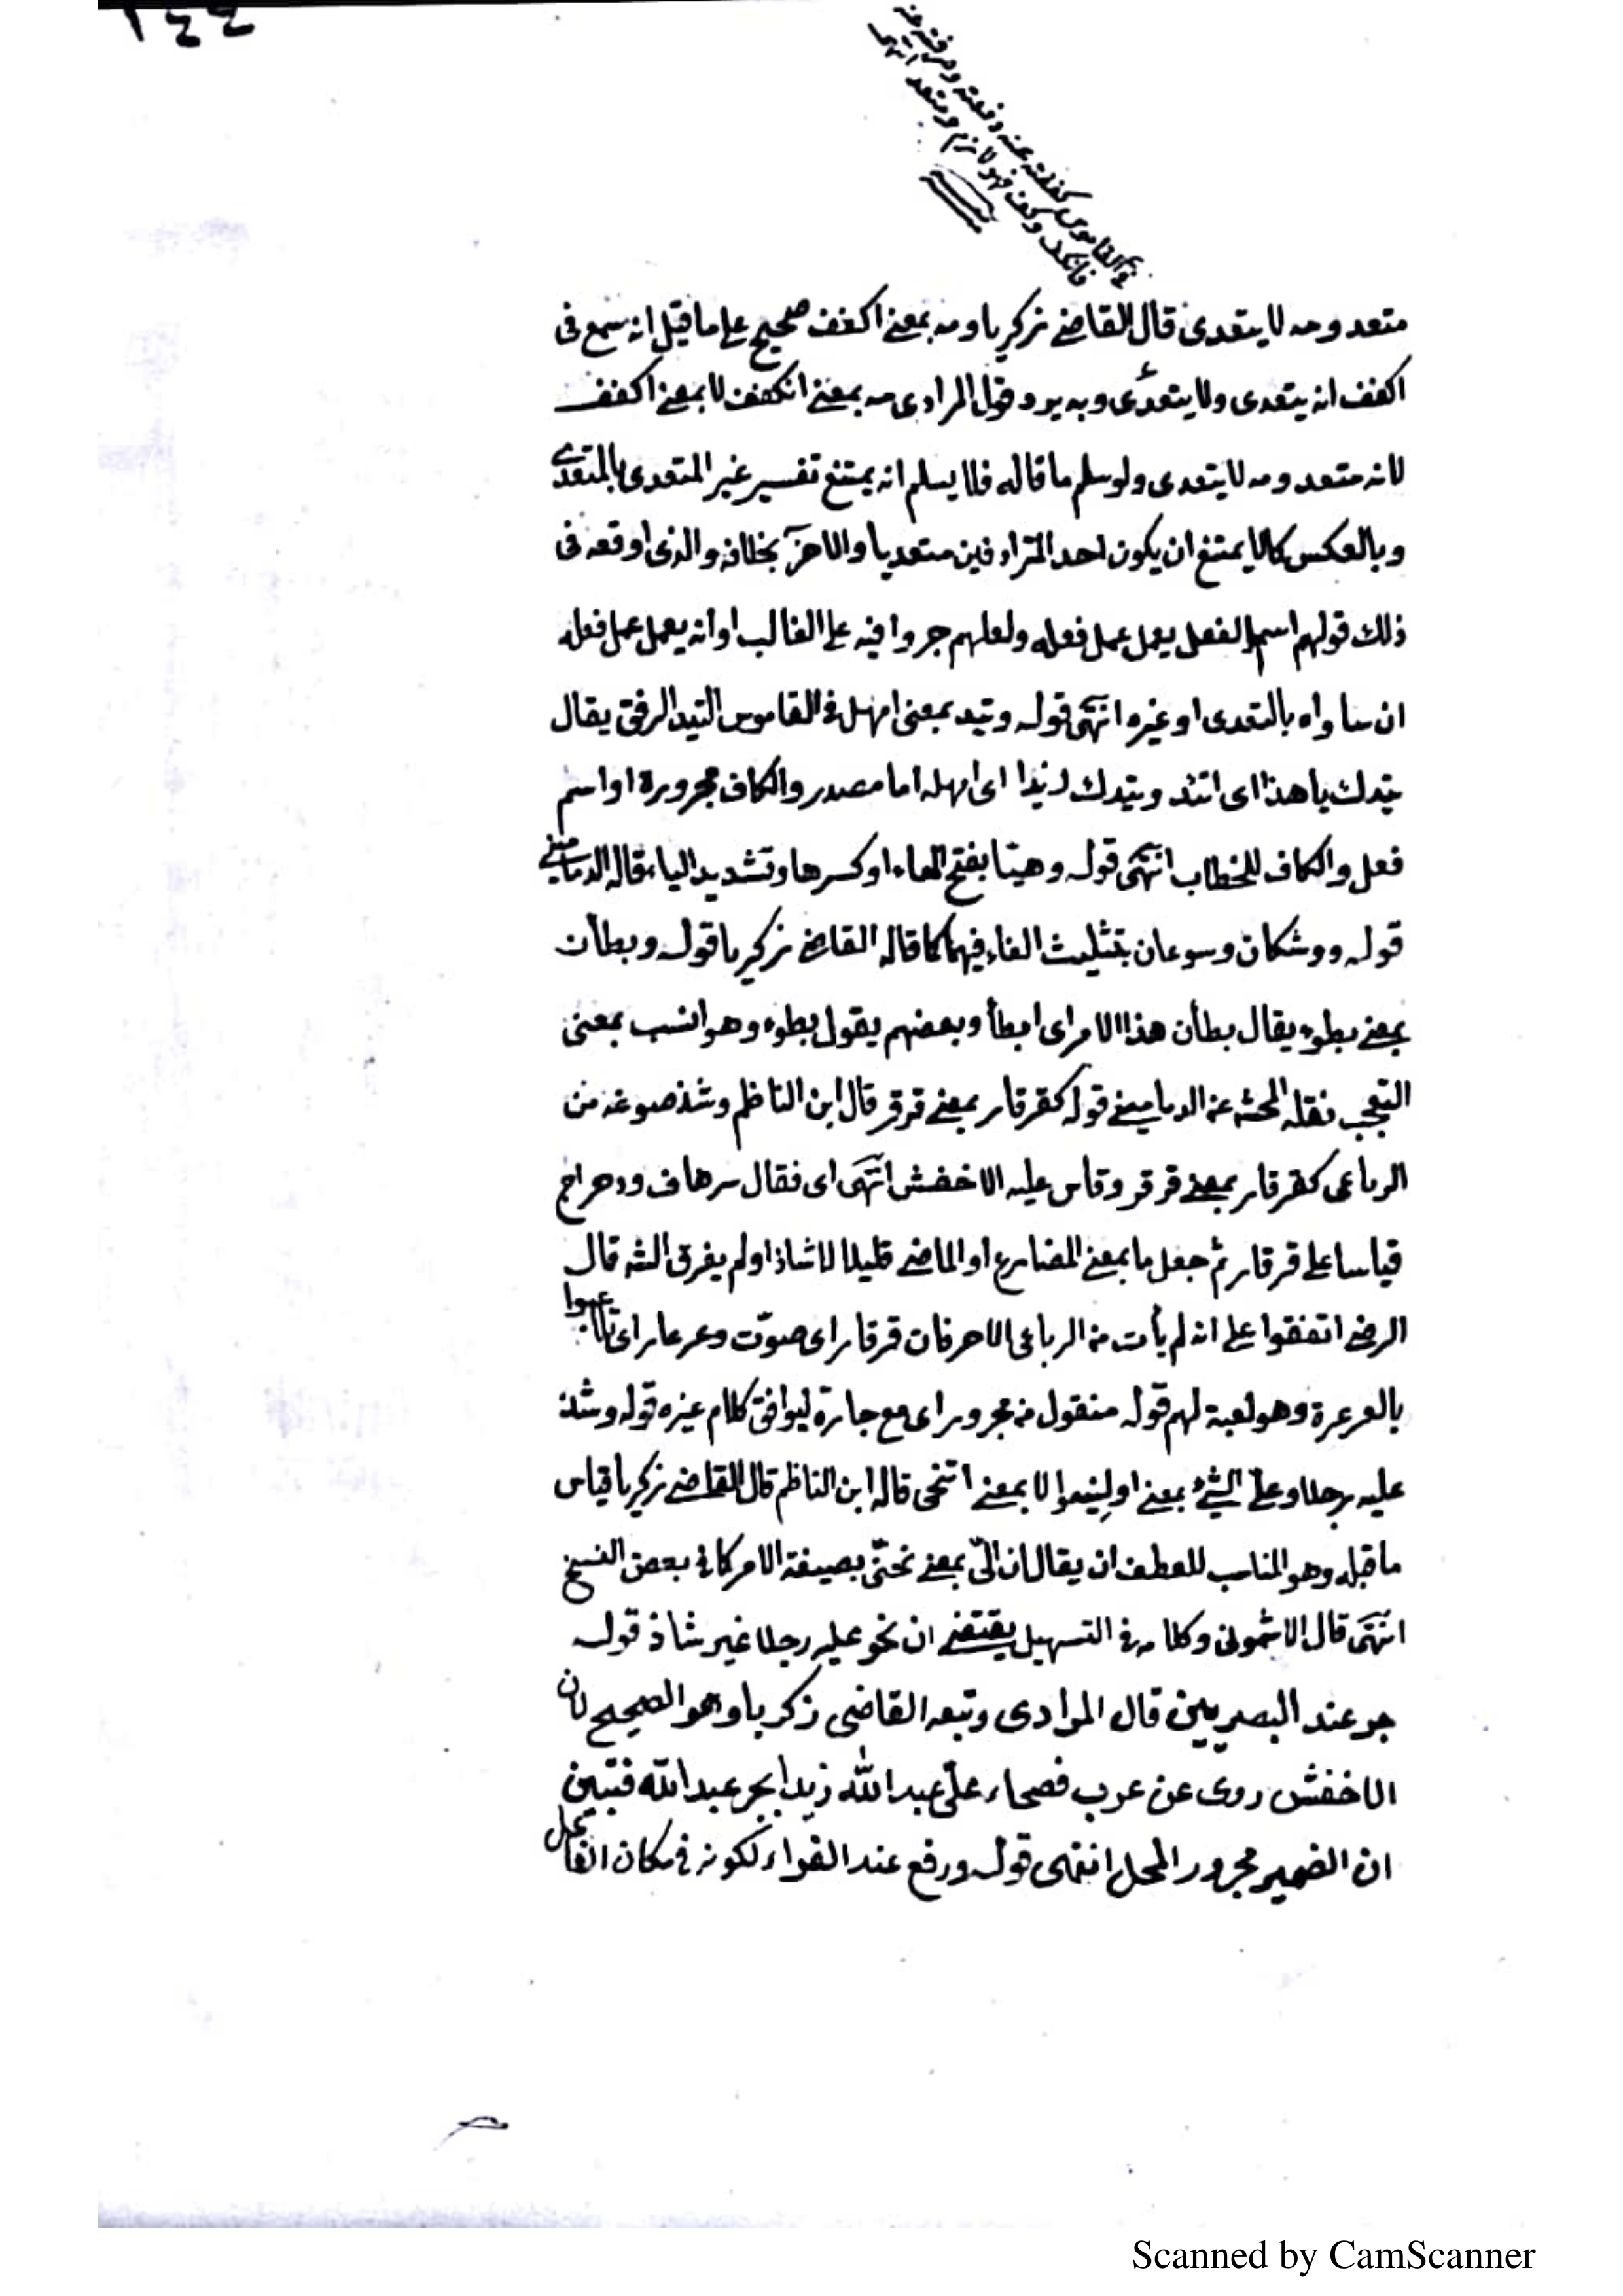 ١٤٤
في القاموس كففته عنه دفعته وصرفته عنه
فانكف وكف فهو لازم ومتعد انتهى
متعد ومه لا يتعدى قال القاضي زكريا ومه بمعنى اكفف صحيح على ما قيل انه سمع في
اكفف انه يتعدى ولا يتعدى وبه يرد قول المرادي مه بمعنى انكفف لا بمعنى اكفف
لانه متعد ومه لا يتعدى ولو سلم ما قاله فلا يسلم انه يمتنع تفسير غير المتعدى بالمتعدي
وبالعكس كما لا يمتنع ان يكون احد المترادفين متعديا والاخر بخلافه والذى اوقعه في
ذلك قولهم اسم الفعل يعمل عمل فعله ولعلهم جروا فيه على الغالب او انه يعمل عمل فعله
ان ساواه بالتعدى او غيره انتهى قوله وتيد بمعنى امهل في القاموس التيد الرفق يقال
تيدك يا هذا اى اتئد وتيدك زيدا اى امهله اما مصدر والكاف مجرورة او اسم
فعل والكاف للخطاب انتهى قوله وهيا بفتح الهاء او كسرها وتشديد الياء قاله الدماميني
قوله ووشكان وسرعان بتثليث الفاء فيهما كما قاله القاضي زكريا قوله وبطأن
بمعنى بطوء يقال بطأن هذا الامر اى ابطأ وبعضهم يقول بطوء وهو انسب بمعنى
التعجب نقله المحشى عن الدماميني قوله كقرقار بمعنى قرقر قال ابن الناظم وشذ صوغه من
الرباعى كقرقار بمعنى قرقر وقاس عليه الاخفش انتهى اى فقال سرهاف ودحراج
قياسا على قرقار ثم جعل ما بمعنى المضارع او الماضي قليلا لا شاذا ولم يفرق الش قال
الرضى اتفقوا على انه لم يأت من الرباعى الا حرفان قرقار اى صوّت وعرعار اى تلاعبوا
بالعرعرة وهو لعبة لهم قوله منقول من مجرور اى مع جارة ليوافق كلام غيره قوله وشذ
عليه رجلا وعلىّ الشئ بمعنى اولنيه والا بمعنى اتنحى قاله ابن الناظم قال القاضي زكريا قياس
ما قبله وهو المناسب للعطف ان يقال ان الىّ بمعنى نحنّى بصيغة الامر كما في بعض النسخ
انتهى قال الاشمونى وكلامه في التسهيل يقتضى ان نحو عليه رجلا غير شاذ قوله
جر عند البصريين قال المرادى وتبعه القاضى زكريا وهو الصحيح لان
الاخفش روى عن عرب فصحاء علىّ عبد الله زيدا بجر عبد الله فتبين
ان الضمير مجرور المحل انتهى قوله ورفع عند الفراء لكونه في مكان الفاعل
Scanned by CamScanner